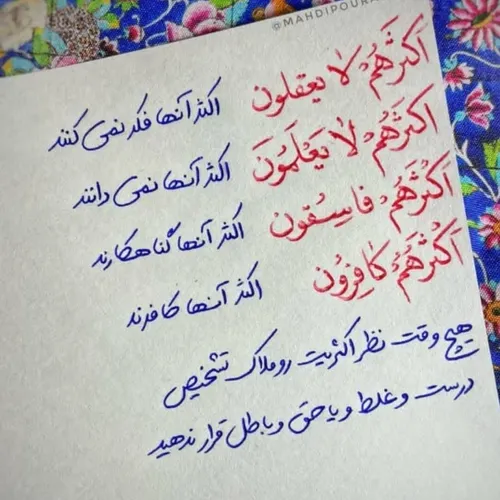 @MAHDIPOURA
اکثَرَهُمْ لا یعقلون اکثر آنها فکر نمی کنند
اکثَرَهُمْ لا یَعْلَمُونَ اکثر آنها نمی دانند
اَکْثَرَهُمْ فاسِقون اکثر آنها گناهکارند
اَکْثَرَهُمْ کافِرُون اکثر آنها کافرند
هیچ وقت نظر اکثریت رو ملاک تشخیص
درست و غلط و یا حق و باطل قرار ندهید